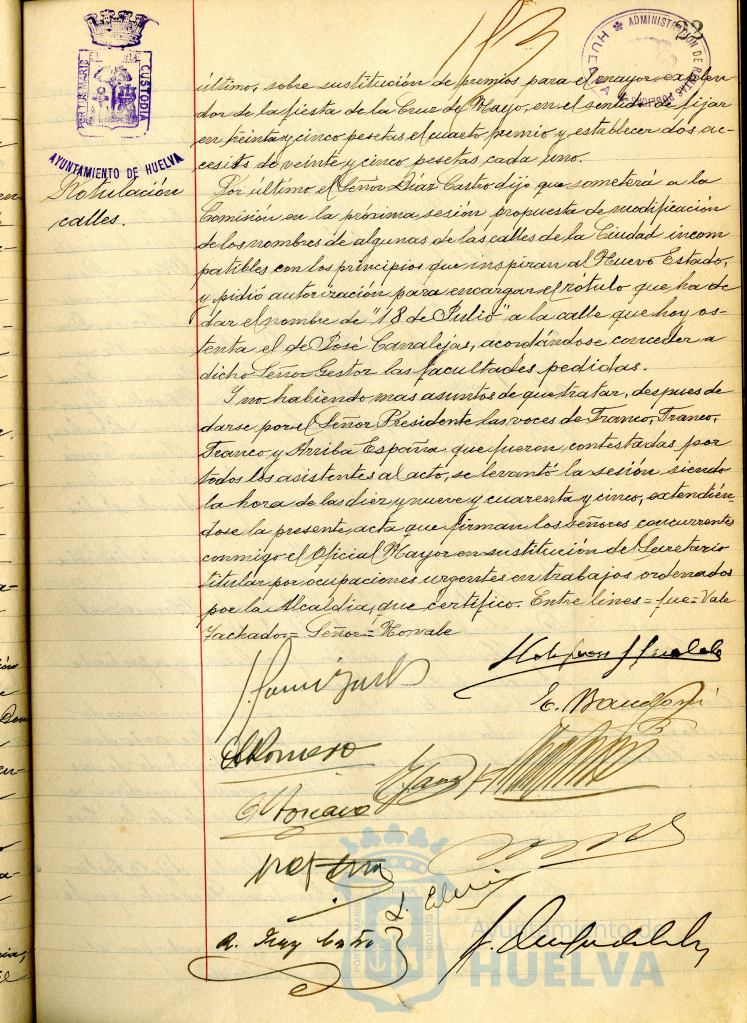 ADMINISTRACIÓN DE RENTAS
HUELVA
PORTUS MARIS
CUSTODIA
AYUNTAMIENTO DE HUELVA
Rotulación
calles.
último, sobre sustitución de premios para el mayor explen-
dor de la fiesta de la Cruz de Mayo, en el sentido de fijar
en treinta y cinco pesetas el cuarto premio y establecer dos ac-
cesits de veinte y cinco pesetas cada uno.
Por último el Señor Díaz Castro dijo que someterá a la
Comisión en la próxima sesión propuesta de modificación
de los nombres de algunas de las calles de la Ciudad incom
patibles con los principios que inspiran al Nuevo Estado,
y pidió autorización para encargar el rótulo que ha de
dar el nombre de "18 de Julio" a la calle que hoy os-
tenta el de José Canalejas, acordándose conceder a
dicho Señor Gestor las facultades pedidas.
Y no habiendo mas asuntos de que tratar, despues de
darse por el Señor Presidente las voces de Franco, Franco,
Franco y Arriba España que fueron contestadas por
todos los asistentes al acto, se levantó la sesión siendo
la hora de las diez y nueve y cuarenta y cinco, extendién
dose la presente acta que firman los señores concurrentes
conmigo el Oficial Mayor en sustitución del Secretario
titular por ocupaciones urgentes en trabajos ordenados
por la Alcaldia, que certifico. Entre lines = fue = Vale
Tachado = Señor = No vale
Romero
A. Díaz Castro
Ayuntamiento de
HUELVA